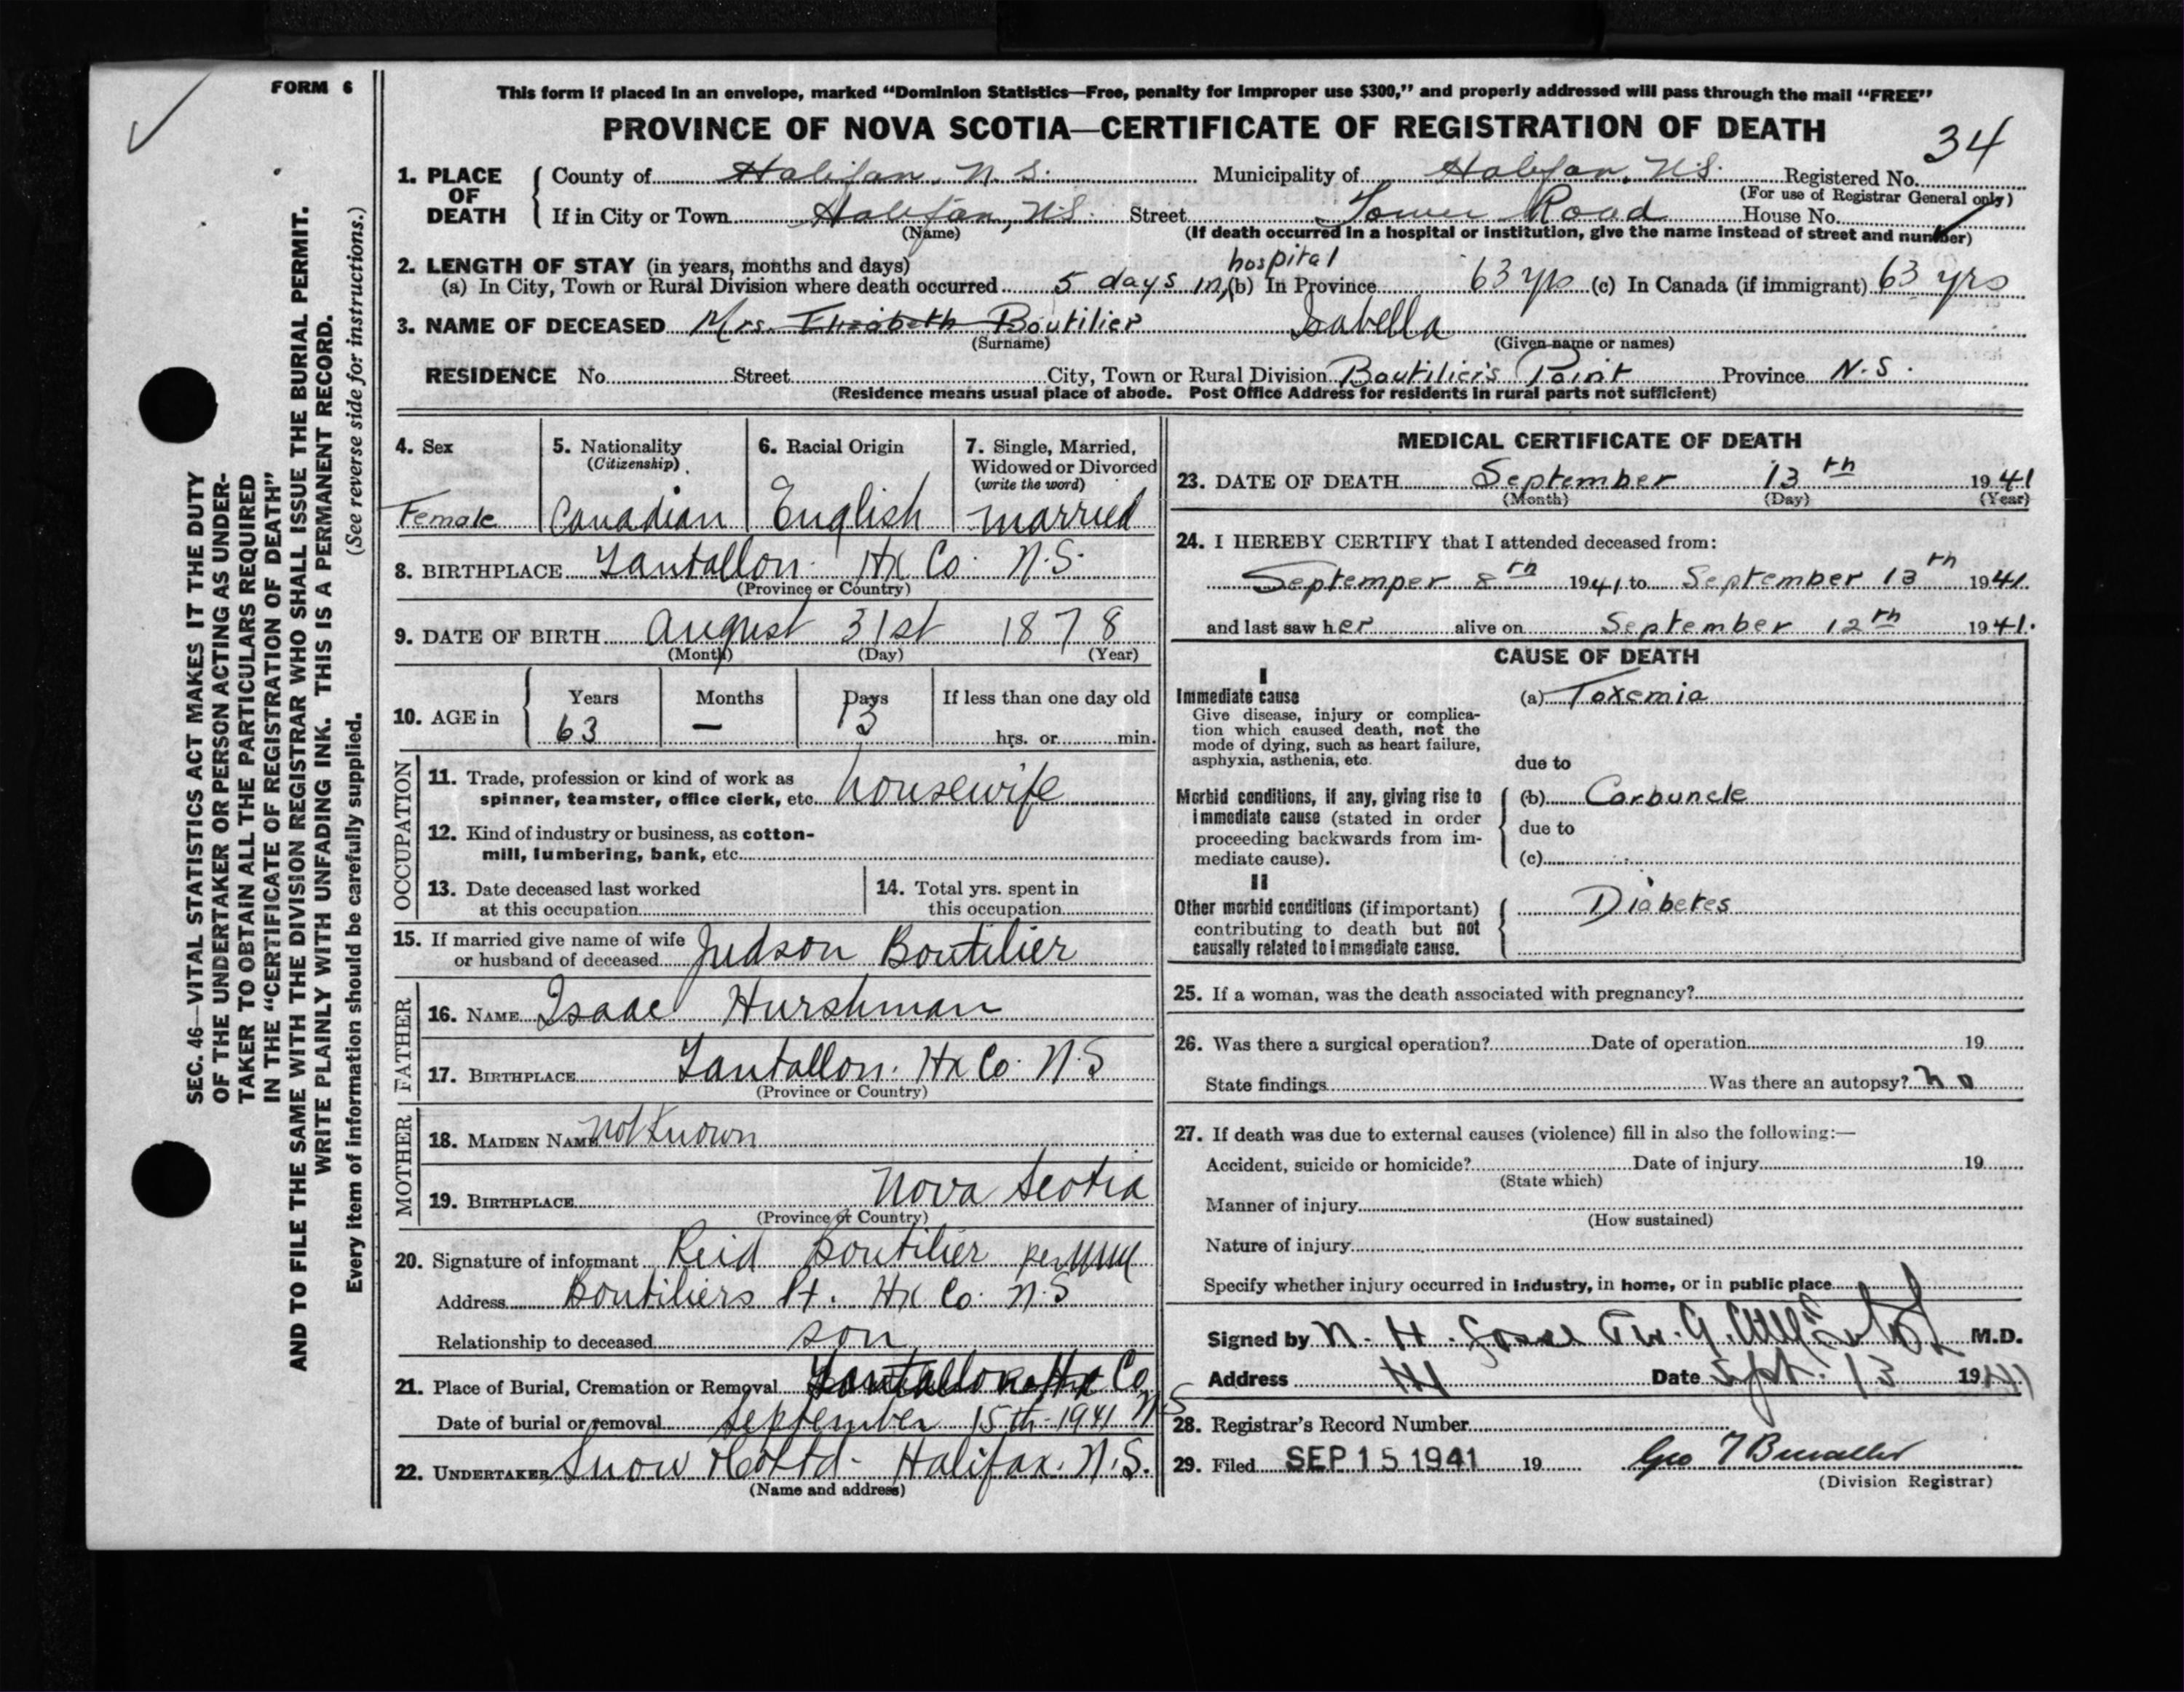 FORM 6
This form if placed in an envelope, marked “Dominion Statistics—Free, penalty for improper use $300,” and properly addressed will pass through the mail “FREE”
PROVINCE OF NOVA SCOTIA—CERTIFICATE OF REGISTRATION OF DEATH
34
1. PLACE OF DEATH
County of Halifax, N.S. Municipality of Halifax, N.S. Registered No.
(For use of Registrar General only)
If in City or Town Halifax, N.S. Street Tower Road House No.
(Name) (If death occurred in a hospital or institution, give the name instead of street and number)
2. LENGTH OF STAY (in years, months and days)
hospital
(a) In City, Town or Rural Division where death occurred 5 days in (b) In Province 63 yrs (c) In Canada (if immigrant) 63 yrs
3. NAME OF DECEASED Mrs. Elizabeth Boutilier Isabella
(Surname) (Given name or names)
RESIDENCE No. Street City, Town or Rural Division Boutilier's Point Province N.S.
(Residence means usual place of abode. Post Office Address for residents in rural parts not sufficient)
4. Sex
Female
5. Nationality
(Citizenship)
Canadian
6. Racial Origin
English
7. Single, Married,
Widowed or Divorced
(write the word)
married
8. BIRTHPLACE Tantallon Hx Co. N.S.
(Province or Country)
9. DATE OF BIRTH August 31st 1878
(Month) (Day) (Year)
10. AGE in
Years Months Days If less than one day old
63 — 13 hrs. or min.
OCCUPATION
11. Trade, profession or kind of work as
spinner, teamster, office clerk, etc. housewife
12. Kind of industry or business, as cotton-
mill, lumbering, bank, etc.
13. Date deceased last worked
at this occupation
14. Total yrs. spent in
this occupation
15. If married give name of wife
or husband of deceased Judson Boutilier
FATHER
16. NAME Isaac Hurshman
17. BIRTHPLACE Tantallon. Hx Co. N.S
(Province or Country)
MOTHER
18. MAIDEN NAME not known
19. BIRTHPLACE Nova Scotia
(Province or Country)
20. Signature of informant Reid Boutilier per
Address Boutiliers Pt. Hx Co. N.S
Relationship to deceased son
21. Place of Burial, Cremation or Removal Tantallon Hx Co
Date of burial or removal September 15th-1941 N.S
22. UNDERTAKER Snow & Co Ltd - Halifax. N.S.
(Name and address)
MEDICAL CERTIFICATE OF DEATH
23. DATE OF DEATH September 13th 1941
(Month) (Day) (Year)
24. I HEREBY CERTIFY that I attended deceased from:
Septemper 8th 1941 to September 13th 1941.
and last saw her alive on September 12th 1941.
CAUSE OF DEATH
I
Immediate cause
Give disease, injury or complica-
tion which caused death, not the
mode of dying, such as heart failure,
asphyxia, asthenia, etc.
(a) Toxemia
due to
Morbid conditions, if any, giving rise to
immediate cause (stated in order
proceeding backwards from im-
mediate cause).
(b) Carbuncle
due to
(c)
II
Other morbid conditions (if important)
contributing to death but not
causally related to immediate cause.
Diabetes
25. If a woman, was the death associated with pregnancy?
26. Was there a surgical operation? Date of operation 19
State findings Was there an autopsy? no
27. If death was due to external causes (violence) fill in also the following:—
Accident, suicide or homicide? Date of injury 19
(State which)
Manner of injury
(How sustained)
Nature of injury
Specify whether injury occurred in industry, in home, or in public place
Signed by N. H. M.D.
Address Date Sept. 13 1941
28. Registrar's Record Number
29. Filed SEP 15 1941 19 Geo
(Division Registrar)
SEC. 46—VITAL STATISTICS ACT MAKES IT THE DUTY
OF THE UNDERTAKER OR PERSON ACTING AS UNDER-
TAKER TO OBTAIN ALL THE PARTICULARS REQUIRED
IN THE “CERTIFICATE OF REGISTRATION OF DEATH”
AND TO FILE THE SAME WITH THE DIVISION REGISTRAR WHO SHALL ISSUE THE BURIAL PERMIT.
WRITE PLAINLY WITH UNFADING INK. THIS IS A PERMANENT RECORD.
Every item of information should be carefully supplied. (See reverse side for instructions.)